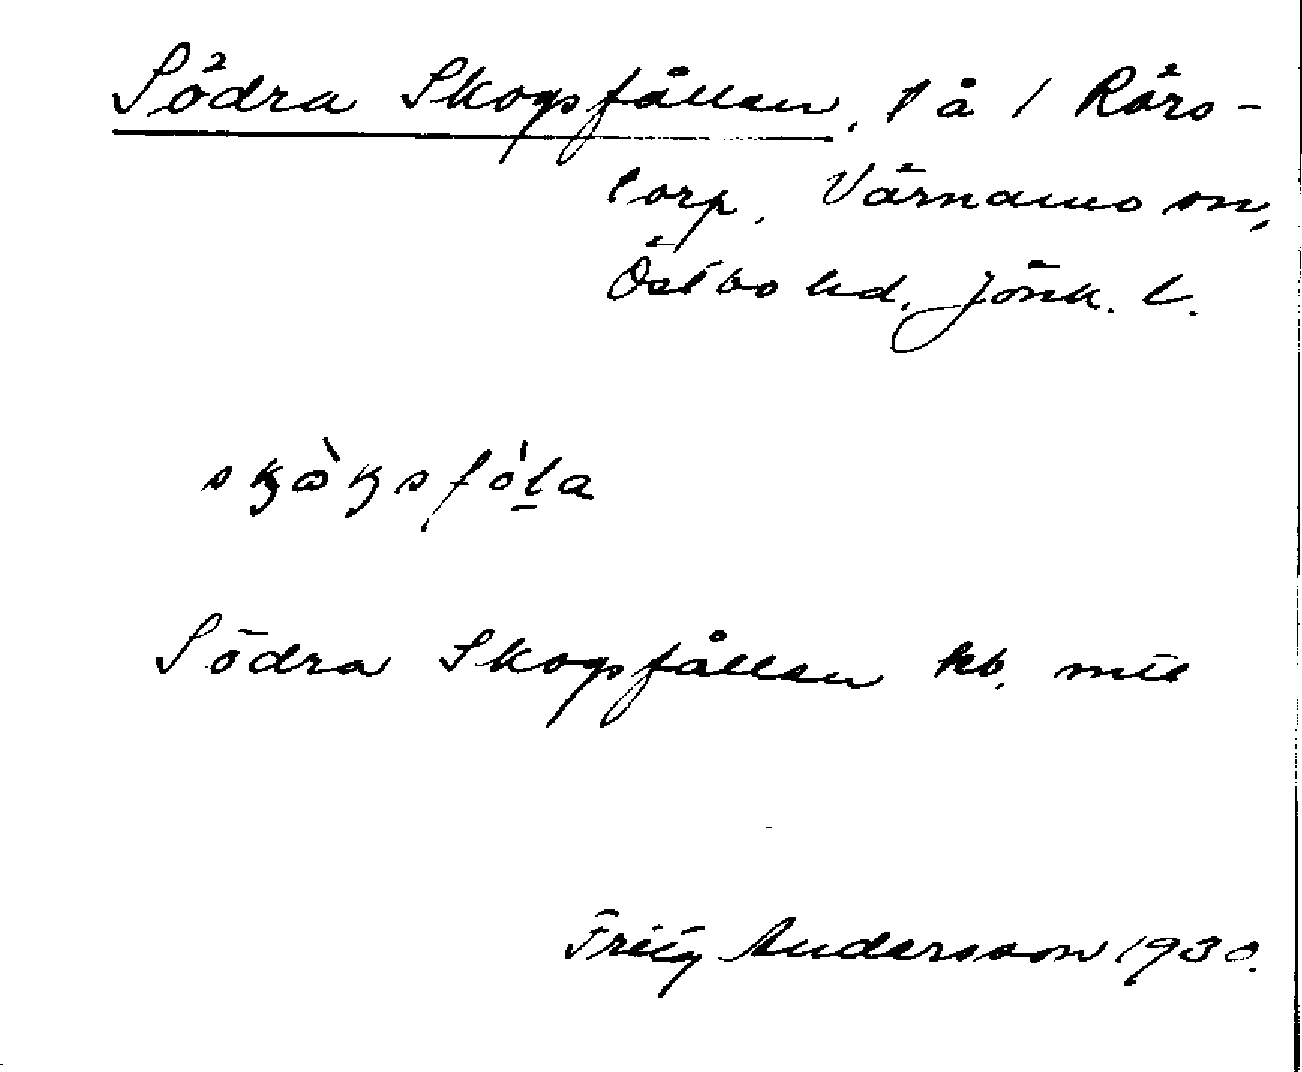 Södra Skogsfållen, t å 1 Rörs-
torp, Värnamo sn,
Östbo hd, Jönk. l.
skòksfo̍la
Södra Skogsfållen kb. mtl
Fritz Andersson 1930.